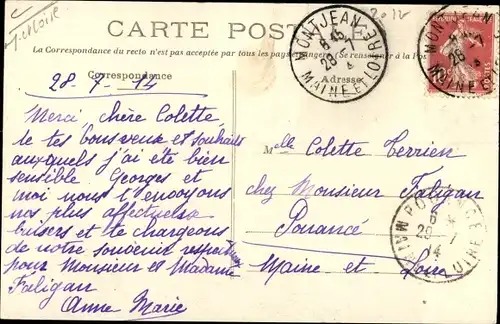 CARTE POSTALE
La Correspondance du recto n'est pas acceptée par tous les pays étrangers (Se renseigner à la Poste)
Correspondance
Adresse
28-7-14
Merci, chère Colette,
de tes bons vœux et souhaits
auxquels j'ai été bien
sensible. Georges et
moi nous t'envoyons
nos plus affectueux
baisers et te chargeons
de notre souvenir respect
pour Monsieur et Madame
Faligan
Anne Marie
Mlle Colette Terrien
chez Monsieur Faligan
Pouancé
Maine et Loire
MONTJEAN
8 45
28 - 7
MAINE ET LOIRE
POUANCÉ
6
29 - 7
14
MAINE ET LOIRE